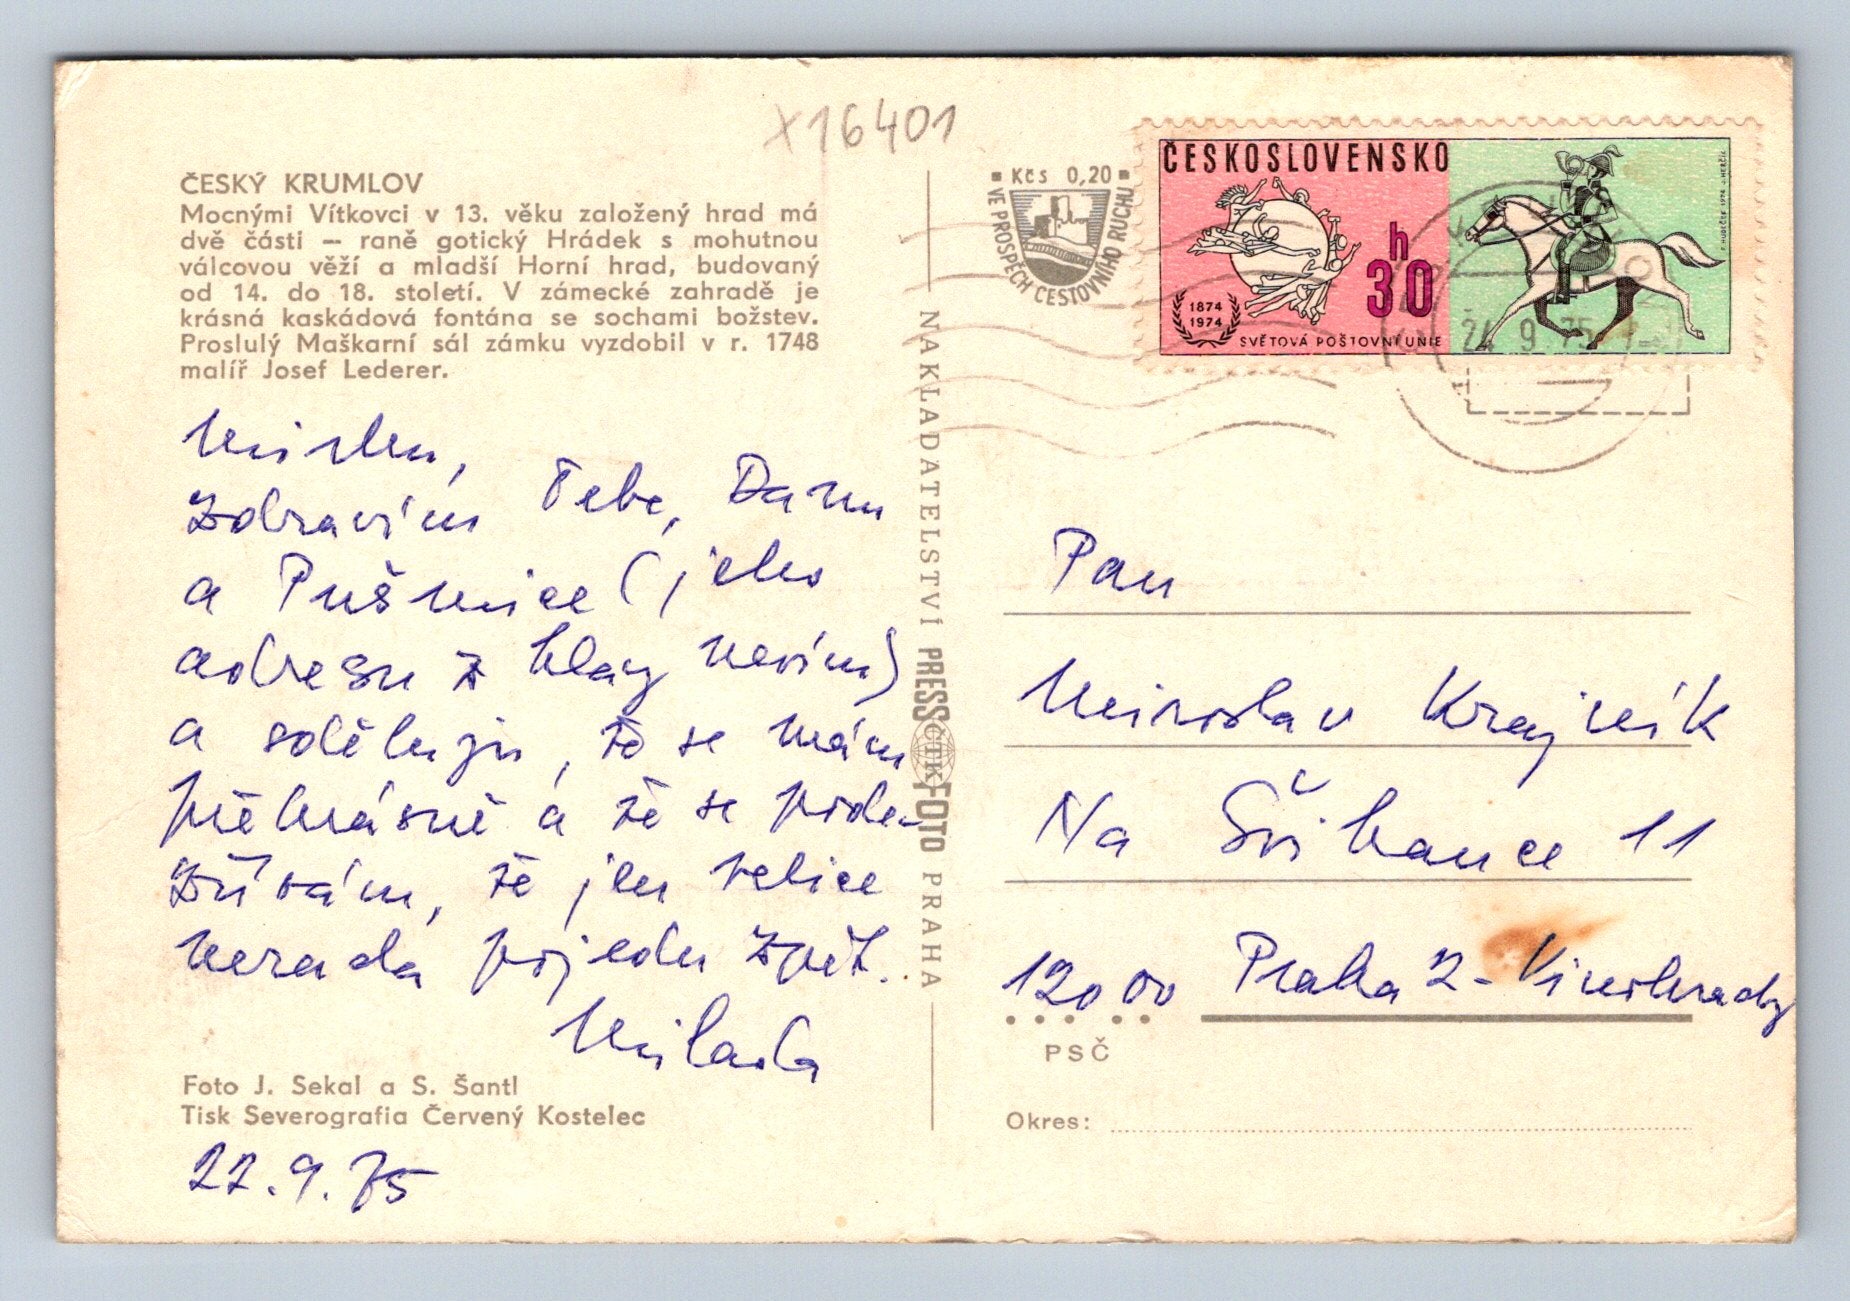 x16401
ČESKÝ KRUMLOV
Mocnými Vítkovci v 13. věku založený hrad má
dvě části — raně gotický Hrádek s mohutnou
válcovou věží a mladší Horní hrad, budovaný
od 14. do 18. století. V zámecké zahradě je
krásná kaskádová fontána se sochami božstev.
Proslulý Maškarní sál zámku vyzdobil v r. 1748
malíř Josef Lederer.
Mirku,
zdravím Tebe, Danu
a Pušmice (jeho
adresu z hlavy nevím)
a sděluji, že se mám
překrásně a že se přde-
zvívám, že jen velice
nerada pojedu zpět.
Milada
Foto J. Sekal a S. Šantl
Tisk Severografia Červený Kostelec
22.9.75
NAKLADATELSTVÍ PRESSFOTO PRAHA
ČTK
Kčs 0,20
VE PROSPĚCH CESTOVNÍHO RUCHU
ČESKOSLOVENSKO
h
30
1874
1974
SVĚTOVÁ POŠTOVNÍ UNIE
F. HUDEČEK 1974 J. HERČÍK
24.9.75
Pan
Miroslav Krajník
Na Švihance 11
120 00 Praha 2 - Vinohrady
PSČ
Okres: